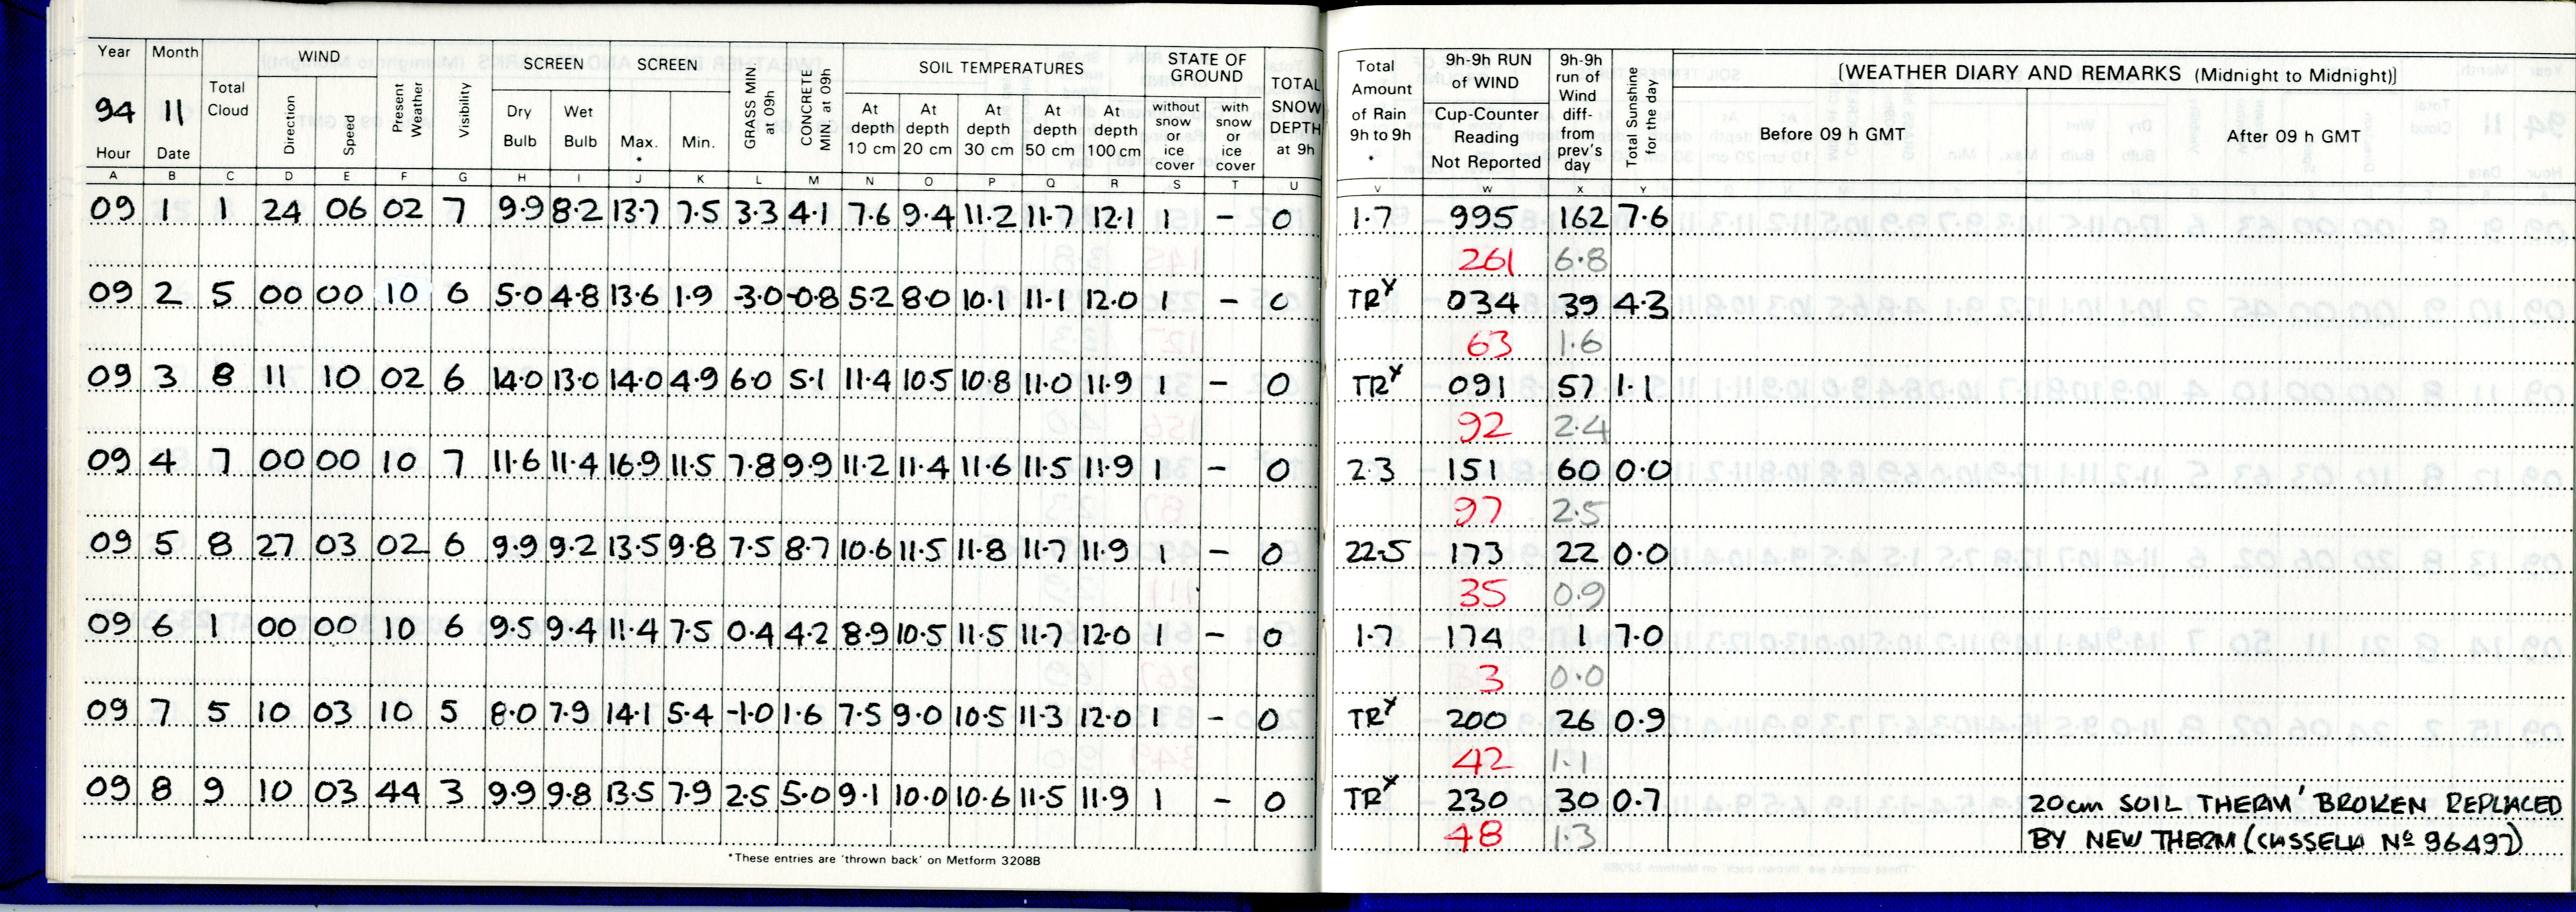 Year Month WIND SCREEN SCREEN GRASS MIN at 09h CONCRETE MIN. at 09h SOIL TEMPERATURES STATE OF GROUND TOTAL SNOW DEPTH at 9h Total Amount of Rain 9h to 9h * 9h-9h RUN of WIND 9h-9h run of Wind diff- from prev's day Total Sunshine for the day [WEATHER DIARY AND REMARKS (Midnight to Midnight)]
94 11 Total Cloud Direction Speed Present Weather Visibility Dry Bulb Wet Bulb Max. * Min. At depth 10 cm At depth 20 cm At depth 30 cm At depth 50 cm At depth 100 cm without snow or ice cover with snow or ice cover Cup-Counter Reading Not Reported Before 09 h GMT After 09 h GMT
Hour Date
A B C D E F G H I J K L M N O P Q R S T U V W X Y
09 1 1 24 06 02 7 9.9 8.2 13.7 7.5 3.3 4.1 7.6 9.4 11.2 11.7 12.1 1 – 0 1.7 995 162 7.6
261 6.8
09 2 5 00 00 10 6 5.0 4.8 13.6 1.9 -3.0 -0.8 5.2 8.0 10.1 11.1 12.0 1 – 0 TRY 034 39 4.3
63 1.6
09 3 8 11 10 02 6 14.0 13.0 14.0 4.9 6.0 5.1 11.4 10.5 10.8 11.0 11.9 1 – 0 TRY 091 57 1.1
92 2.4
09 4 7 00 00 10 7 11.6 11.4 16.9 11.5 7.8 9.9 11.2 11.4 11.6 11.5 11.9 1 – 0 2.3 151 60 0.0
97 2.5
09 5 8 27 03 02 6 9.9 9.2 13.5 9.8 7.5 8.7 10.6 11.5 11.8 11.7 11.9 1 – 0 22.5 173 22 0.0
35 0.9
09 6 1 00 00 10 6 9.5 9.4 11.4 7.5 0.4 4.2 8.9 10.5 11.5 11.7 12.0 1 – 0 1.7 174 1 7.0
3 0.0
09 7 5 10 03 10 5 8.0 7.9 14.1 5.4 -1.0 1.6 7.5 9.0 10.5 11.3 12.0 1 – 0 TRY 200 26 0.9
42 1.1
09 8 9 10 03 44 3 9.9 9.8 13.5 7.9 2.5 5.0 9.1 10.0 10.6 11.5 11.9 1 – 0 TRY 230 30 0.7 20cm SOIL THERM' BROKEN REPLACED
48 1.3 BY NEW THERM (CASSELLA Nº 96497)
*These entries are 'thrown back' on Metform 3208B